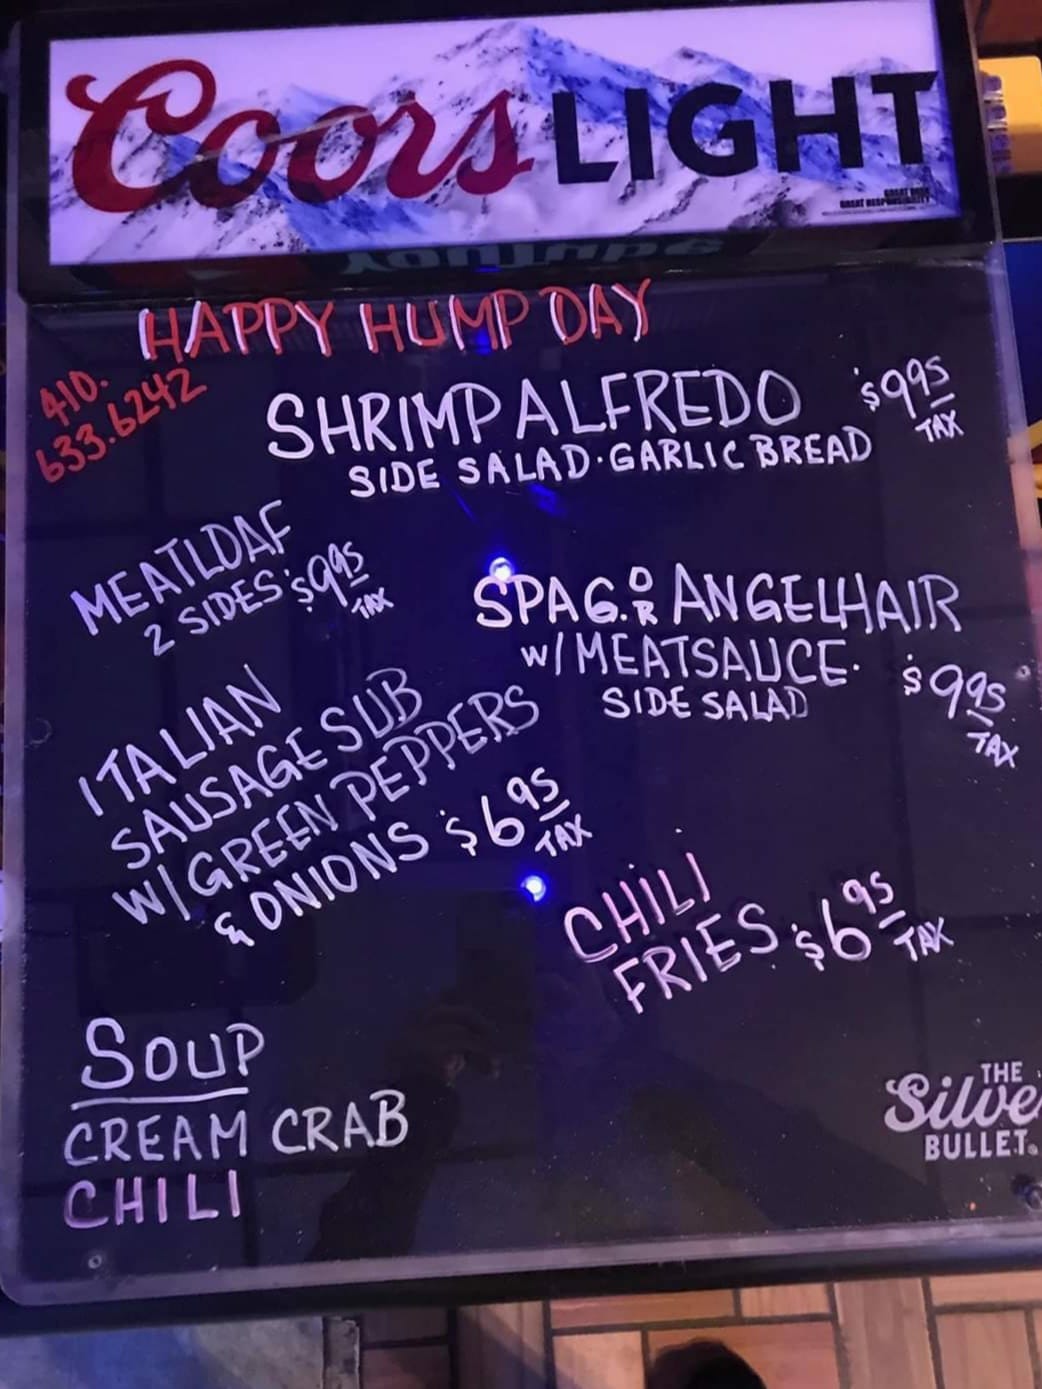 Coors LIGHT
GREAT BEER
GREAT RESPONSIBILITY
HAPPY HUMP DAY
410.
633.6242
SHRIMP ALFREDO $9.95
TAX
SIDE SALAD·GARLIC BREAD
MEATLOAF
2 SIDES $9.95
TAX
SPAG. OR ANGELHAIR
W/MEATSAUCE. $9.95
TAX
SIDE SALAD
ITALIAN
SAUSAGE SUB
W/GREEN PEPPERS
& ONIONS $6.95
TAX
CHILI
FRIES $6.95
TAX
SOUP
CREAM CRAB
CHILI
THE
Silve
BULLET.